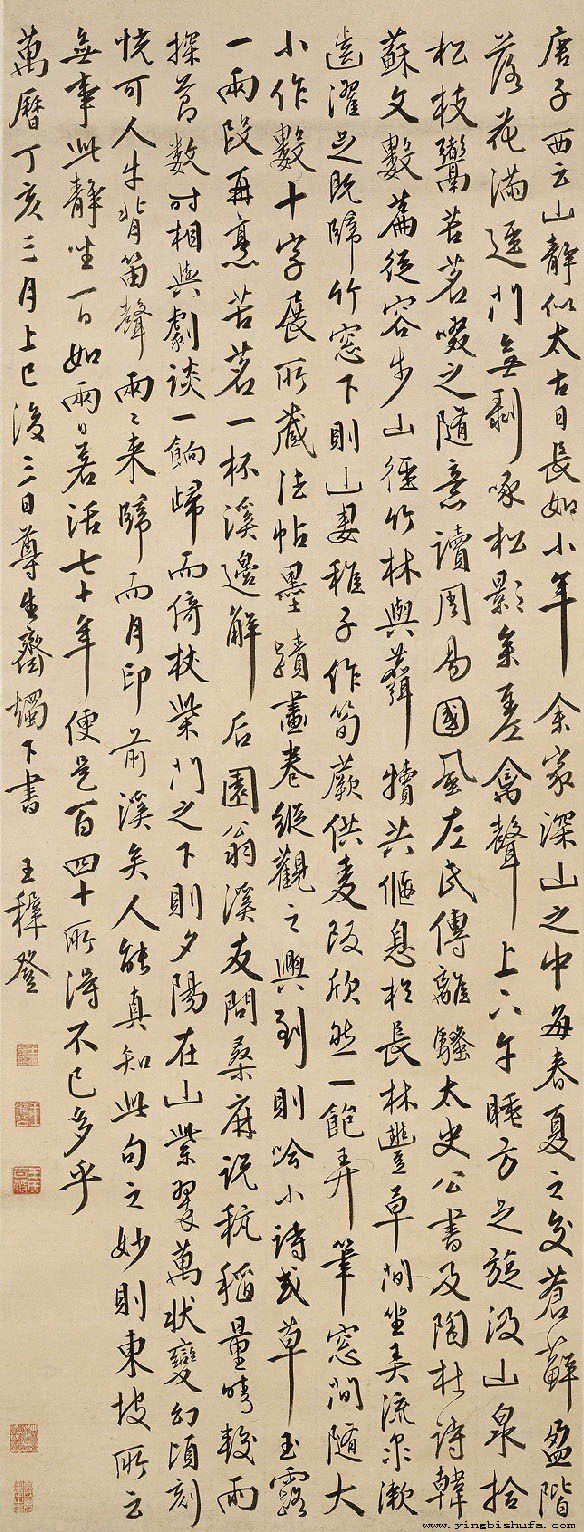 唐子西云山靜似太古日長如小年余家深山之中每春夏之交蒼蘚盈階
落花滿逕門無剝啄松影參差禽聲上下午睡方足旋汲山泉拾
松枝鬻苦茗啜之隨意讀周易國風左氏傳離騷太史公書及陶杜詩韓
蘇文數篇從容步山徑竹林與麛犢共偃息於長林豐草間坐弄流泉漱
齒濯足既歸竹窓下則山妻稚子作筍蕨供麥飯欣然一飽弄筆窓間隨大
小作數十字展所藏法帖墨蹟畫卷縱觀之興到則吟小詩或草玉露
一兩段再烹苦茗一杯溪邊解后園翁溪友問桑麻說秔稻量晴較雨
探節數時相與劇談一餉歸而倚杖柴門之下則夕陽在山紫翠萬狀變幻頃刻
恍可人牛背笛聲兩々來歸而月印前溪矣人能真知此句之妙則東坡所云
無事此靜坐一日如兩日若活七十年便是百四十所得不已多乎
萬曆丁亥三月上巳後三日尊生齋燭下書 王穉登
www.yingbishufa.com